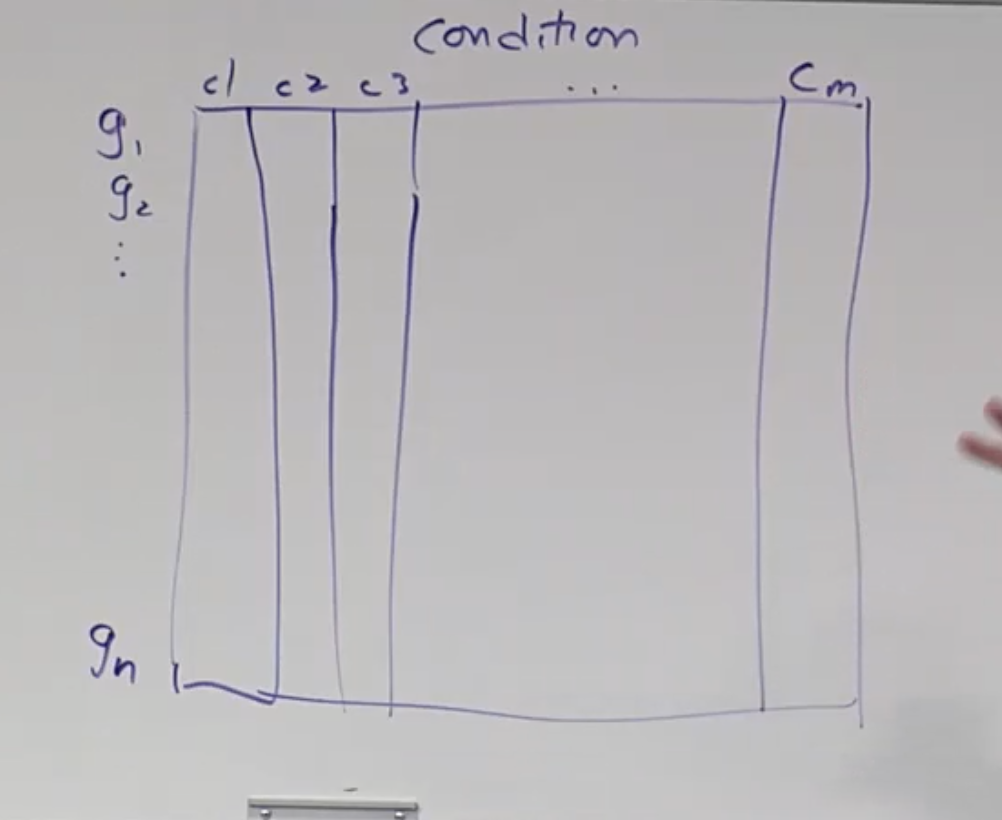 condition
c1 c2 c3 ... Cm
g1
g2
⋮
gn